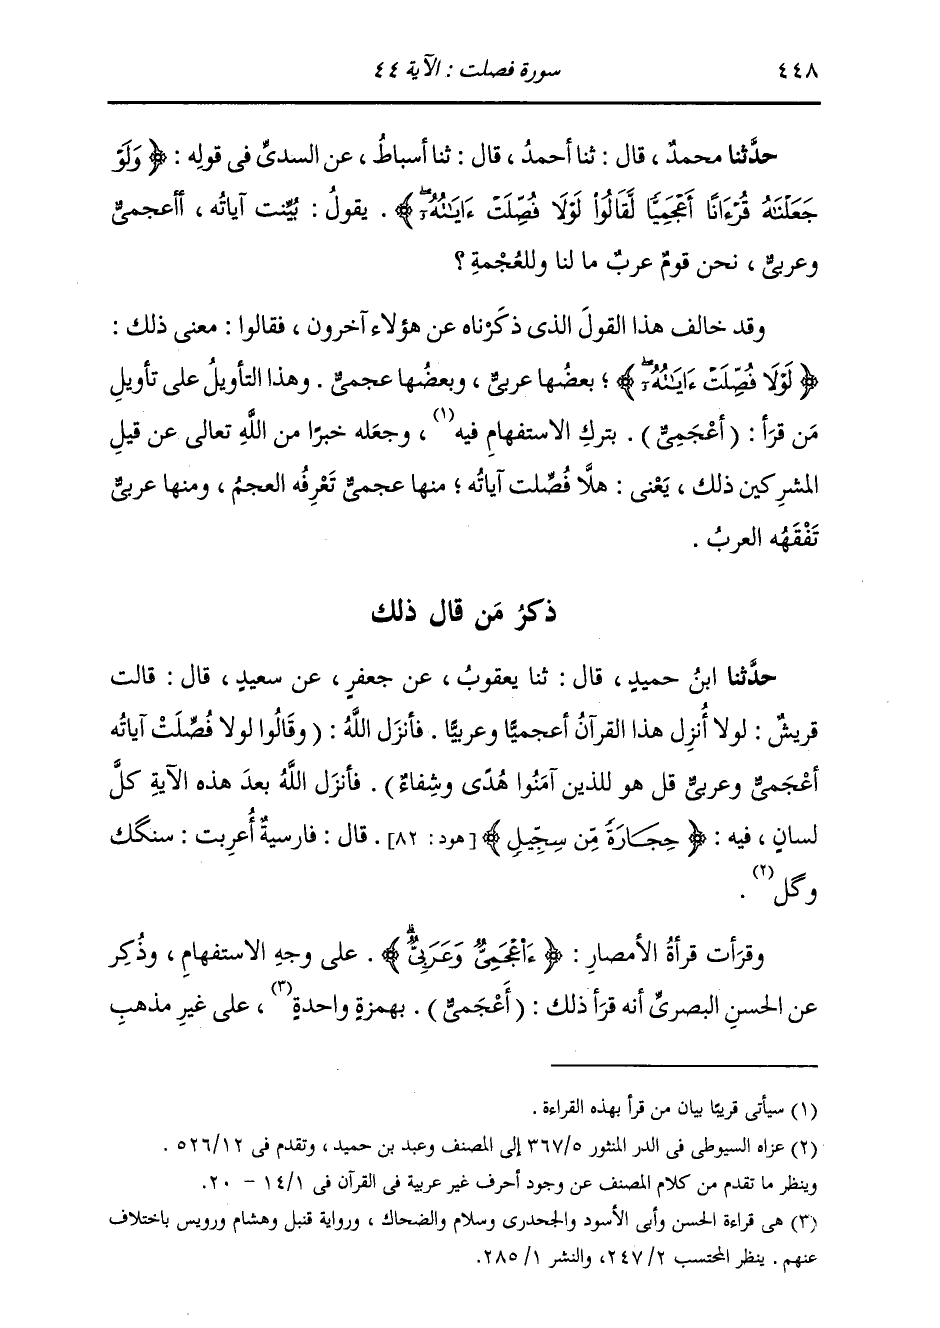 ٤٤٨ سورة فصلت : الآية ٤٤
حدَّثنا محمدٌ ، قال : ثنا أحمدُ ، قال : ثنا أسباطُ ، عن السدىِّ فى قولِه : ﴿ وَلَوْ
جَعَلْنَٰهُ قُرْءَانًا أَعْجَمِيًّا لَّقَالُوا۟ لَوْلَا فُصِّلَتْ ءَايَٰتُهُۥٓۖ ﴾ . يقولُ : بُيِّنت آياتُه ، أأعجمىٌّ
وعربىٌّ ، نحن قومٌ عربٌ ما لنا وللعُجْمةِ ؟
وقد خالف هذا القولَ الذى ذكَرْناه عن هؤلاء آخرون ، فقالوا : معنى ذلك :
﴿ لَوْلَا فُصِّلَتْ ءَايَٰتُهُۥٓۖ ﴾ ؛ بعضُها عربىٌّ ، وبعضُها عجمىٌّ . وهذا التأويلُ على تأويلِ
مَن قرَأ : ( أعْجَمِىٌّ ) . بتركِ الاستفهامِ فيه(١) ، وجعَله خبرًا من اللَّهِ تعالى عن قيلِ
المشركين ذلك ، يَعْنى : هلَّا فُصِّلت آياتُه ؛ منها عجمىٌّ تَعْرِفُه العجمُ ، ومنها عربىٌّ
تَفْقَهُه العربُ .
ذكرُ مَن قال ذلك
حدَّثنا ابنُ حميدٍ ، قال : ثنا يعقوبُ ، عن جعفرٍ ، عن سعيدٍ ، قال : قالت
قريشٌ : لولا أُنزِل هذا القرآنُ أعجميًّا وعربيًّا . فأنزَل اللَّهُ : ( وقَالُوا لولا فُصِّلَتْ آياتُه
أعْجَمىٌّ وعربىٌّ قل هو للذين آمَنُوا هُدًى وشِفاءٌ ) . فأنزَل اللَّهُ بعدَ هذه الآيةِ كلَّ
لسانٍ ، فيه : ﴿ حِجَارَةً مِّن سِجِّيلٍ ﴾ [ هود : ٨٢ ] . قال : فارسيةٌ أُعرِبت : سنگك
وگل(٢) .
وقرَأت قرأةُ الأمصارِ : ﴿ ءَا۬عْجَمِىٌّ وَعَرَبِىٌّۗ ﴾ . على وجهِ الاستفهامِ ، وذُكِر
عن الحسنِ البصرىِّ أنه قرَأ ذلك : ( أَعْجَمىٌّ ) . بهمزةٍ واحدةٍ(٣) ، على غيرِ مذهبِ
(١) سيأتى قريبًا بيان من قرأ بهذه القراءة .
(٢) عزاه السيوطى فى الدر المنثور ٣٦٧/٥ إلى المصنف وعبد بن حميد ، وتقدم فى ٥٢٦/١٢ .
وينظر ما تقدم من كلام المصنف عن وجود أحرف غير عربية فى القرآن فى ١٤/١ - ٢٠.
(٣) هى قراءة الحسن وأبى الأسود والجحدرى وسلام والضحاك ، ورواية قنبل وهشام ورويس باختلاف
عنهم . ينظر المحتسب ٢٤٧/٢، والنشر ٢٨٥/١.